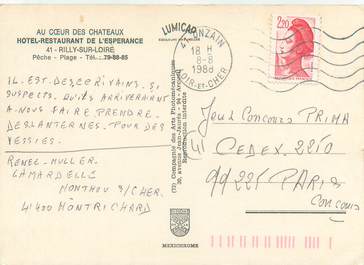 AU CŒUR DES CHATEAUX
HOTEL-RESTAURANT DE L'ESPERANCE
41 - RILLY-SUR-LOIRE
Pêche - Plage - Tél.: 79-88-85
LUMICAP
41 ONZAIN
18 H
8-8
1988
LOIR-ET-CHER
2,20
IL. EST. DES ECRIVAINS. SI
SUSPECTS. QU'ILS ARRIVERAIENT
A. NOUS FAIRE. PRENDRE.
DES LANTERNES. POUR DES
VESSIES.
RENEE. MULLER.
LAMARDELLE
MONTHOU S/CHER.
41400 MONTRICHARD
Jeu Concours PRIMA
41 CEDEX 2210
99225 PARIS
Concours
(T) Compagnie des Arts Photomécaniques
Reproduction interdite
MEXICHROME